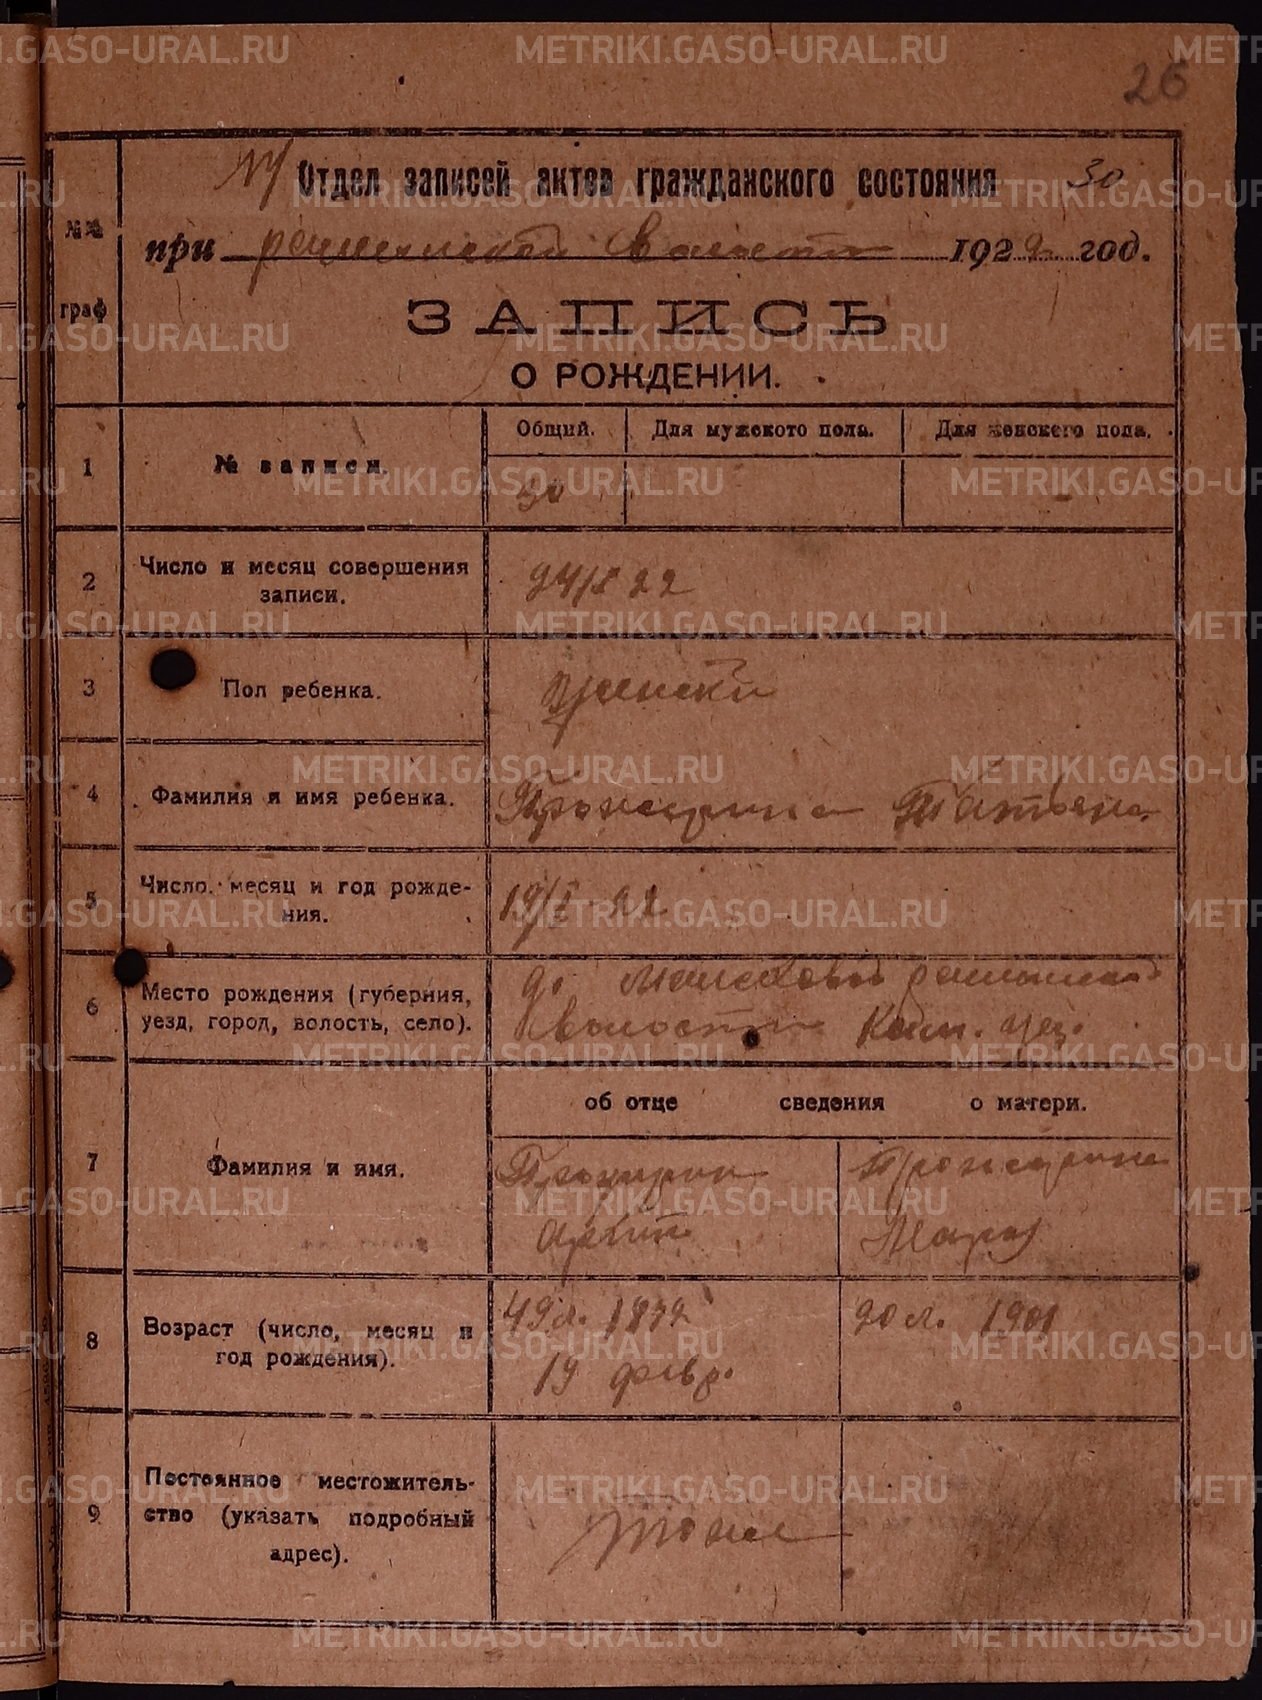 METRIKI.GASO-URAL.RU
26
№ 
Отдел записей актов гражданского состояния 30
№№
граф
при волости 1922 год.
ЗАПИСЬ
О РОЖДЕНИИ.
1
№ записи.
Общий.
Для мужского пола.
Для женского пола.
30
2
Число и месяц совершения
записи.
24/I 22
3
Пол ребенка.
женски
4
Фамилия и имя ребенка.
Татьяна
5
Число, месяц и год рожде-
ния.
19/I 22
6
Место рождения (губерния,
уезд, город, волость, село).
волости уез.
7
Фамилия и имя.
об отце сведения о матери.
8
Возраст (число, месяц и
год рождения).
49 л. 1872
19 февр.
20 л. 1901
9
Постоянное местожитель-
ство (указать подробный
адрес).
тоже